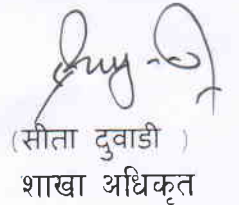 (सीता दुवाडी )
शाखा अधिकृत